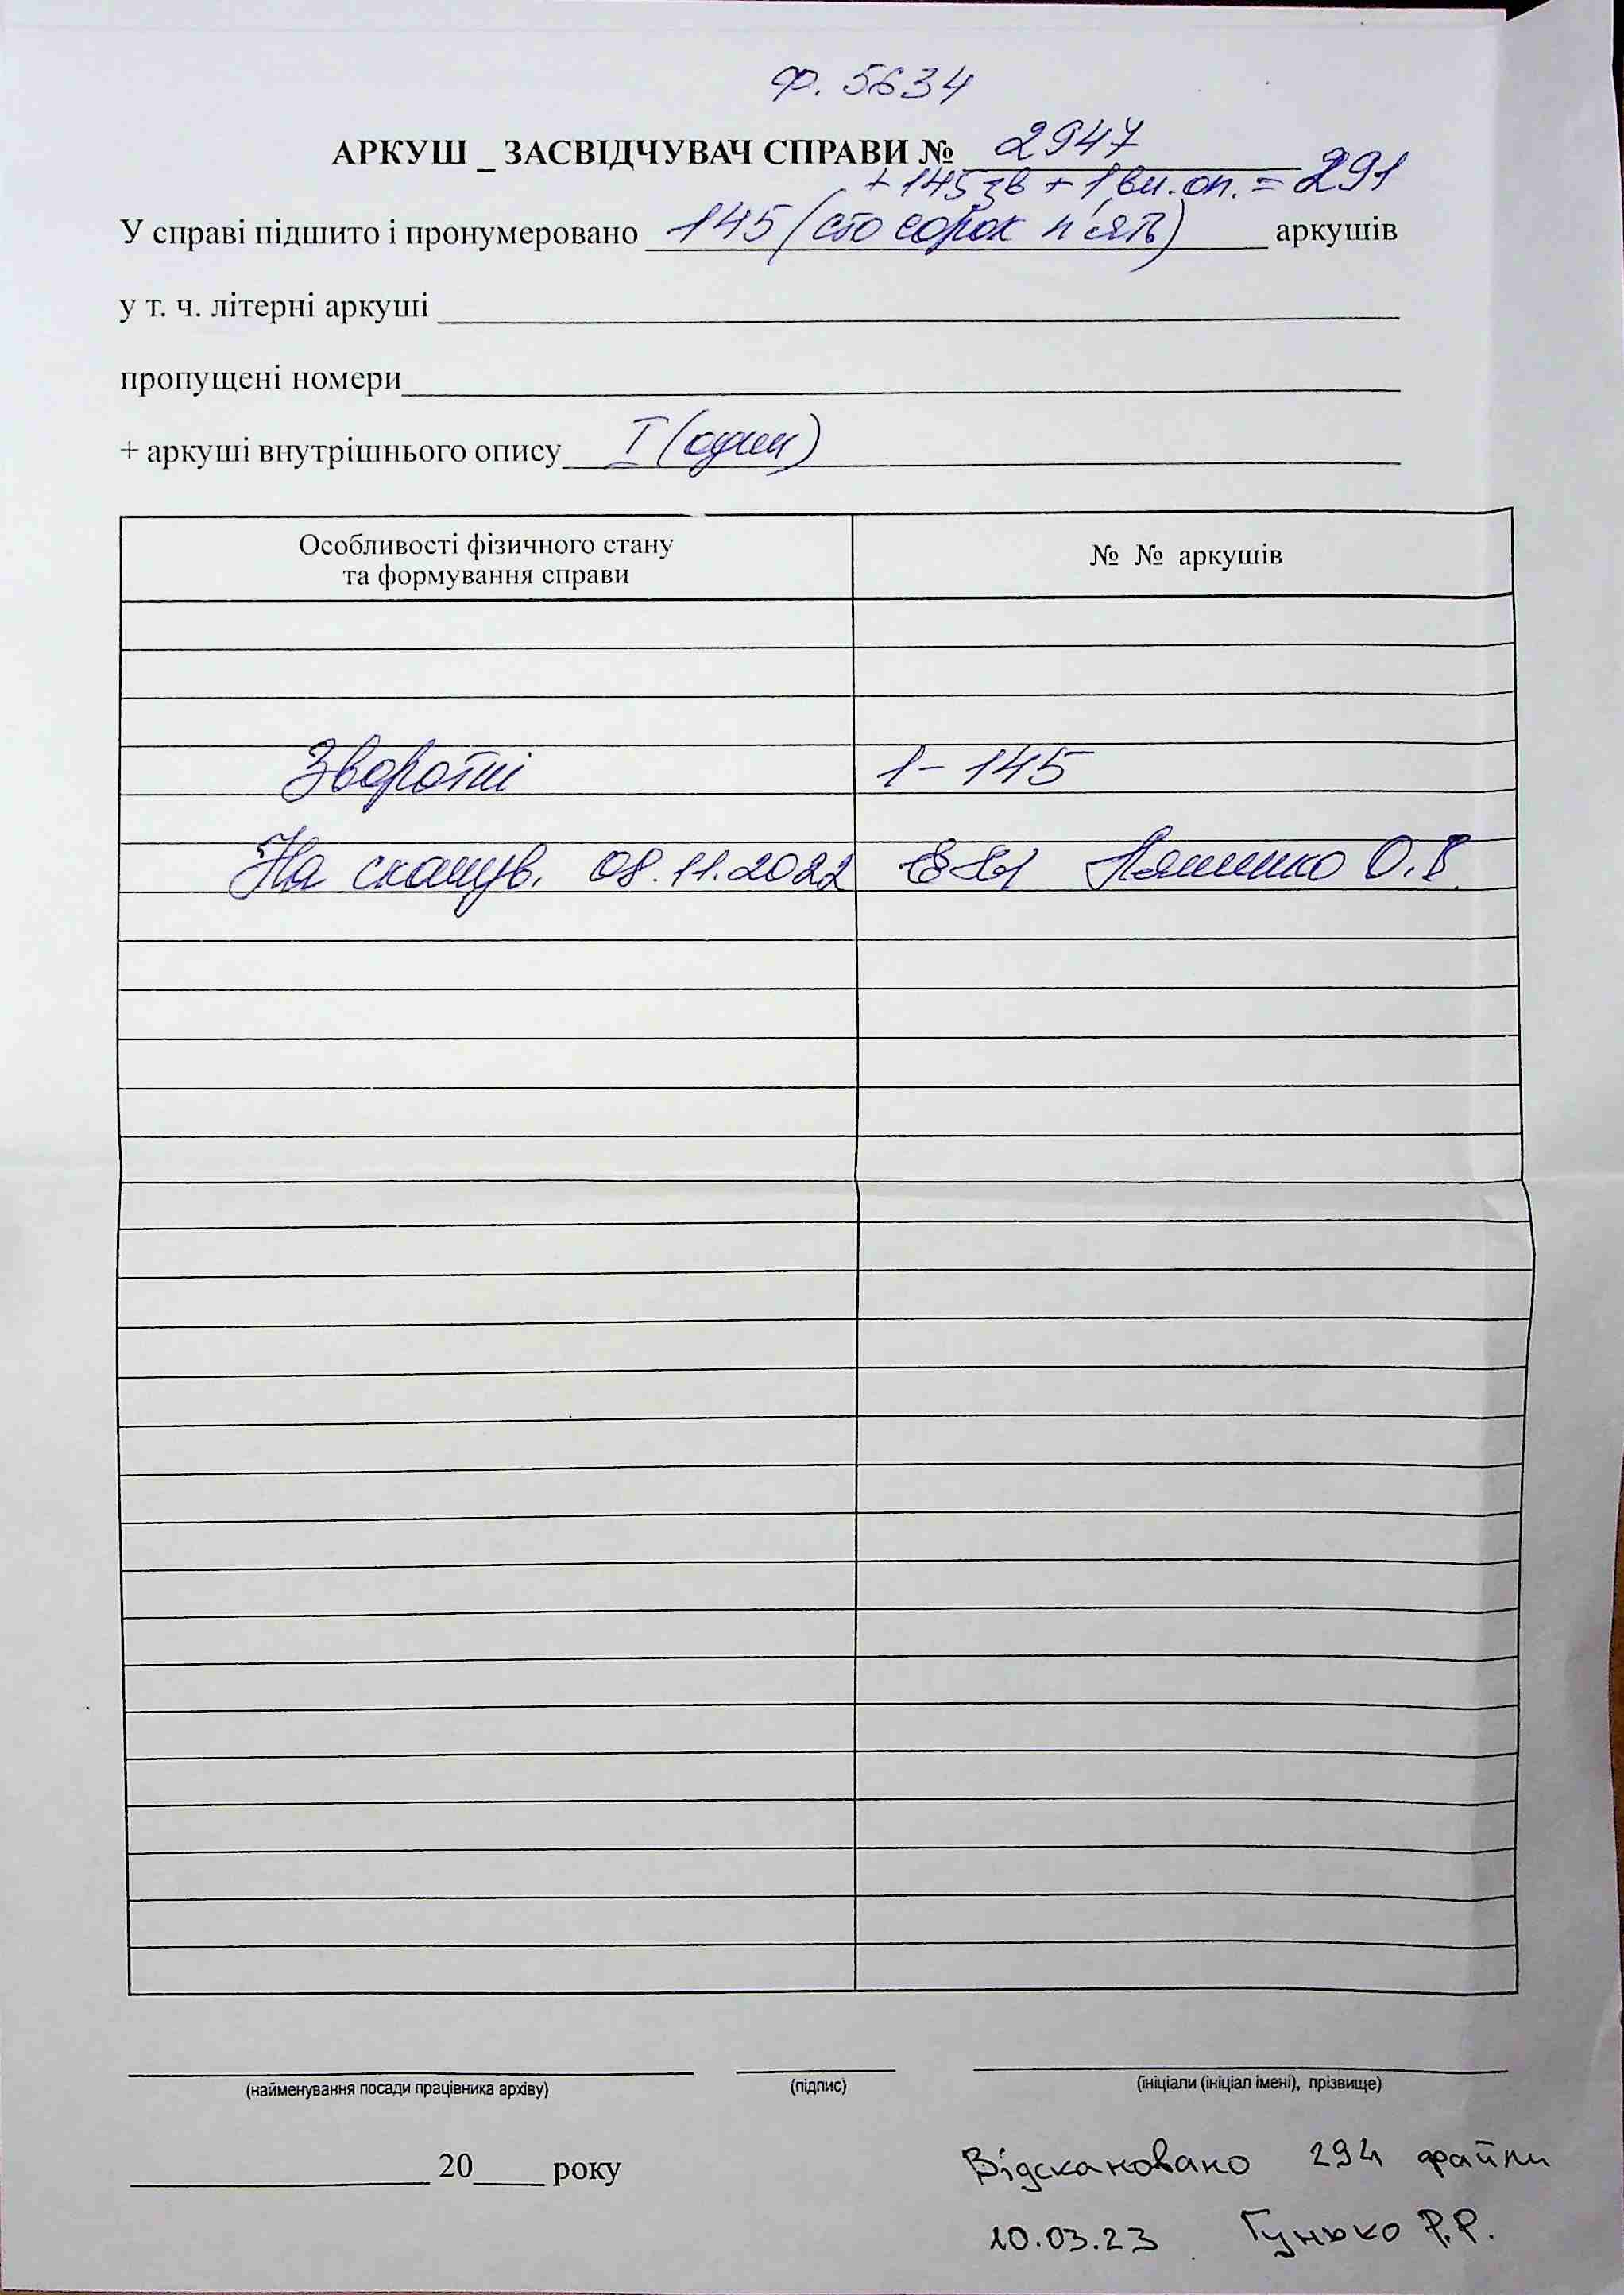 Ф. 5634
АРКУШ _ ЗАСВІДЧУВАЧ СПРАВИ № 2947
+ 145 зв + 1 вн. оп. = 291
У справі підшито і пронумеровано 145 (сто сорок п'ять) аркушів
у т. ч. літерні аркуші
пропущені номери
+ аркуші внутрішнього опису I (один)
Особливості фізичного стану
та формування справи
№ № аркушів
Зворотні 1-145
На сканув. 08.11.2022 О.В.
(найменування посади працівника архіву) (підпис) (ініціали (ініціал імені), прізвище)
20 року
Відскановано 294 файли
10.03.23 Гунько Р.Р.